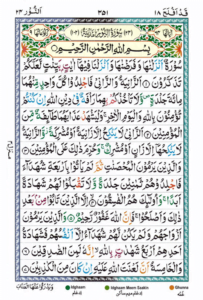 قَدْ اَفْلَحَ ١٨ ٣٥١ اَلنُّوْر ٢٤
بِسْمِ اللهِ الرَّحْمٰنِ الرَّحِيْمِ
سُوْرَةٌ اَنْزَلْنٰهَا وَفَرَضْنٰهَا وَاَنْزَلْنَا فِيْهَآ اٰيٰتٍۭ بَيِّنٰتٍ لَّعَلَّكُمْ
تَذَكَّرُوْنَ اَلزَّانِيَةُ وَالزَّانِيْ فَاجْلِدُوْا كُلَّ وَاحِدٍ مِّنْهُمَا
مِائَةَ جَلْدَةٍ وَّلَا تَاْخُذْكُمْ بِهِمَا رَاْفَةٌ فِيْ دِيْنِ اللهِ اِنْ
كُنْتُمْ تُؤْمِنُوْنَ بِاللهِ وَالْيَوْمِ الْاٰخِرِ وَلْيَشْهَدْ عَذَابَهُمَا طَآئِفَةٌ مِّنَ
الْمُؤْمِنِيْنَ اَلزَّانِيْ لَا يَنْكِحُ اِلَّا زَانِيَةً اَوْ مُشْرِكَةً وَّالزَّانِيَةُ
لَا يَنْكِحُهَآ اِلَّا زَانٍ اَوْ مُشْرِكٌ وَحُرِّمَ ذٰلِكَ عَلَى
الْمُؤْمِنِيْنَ وَالَّذِيْنَ يَرْمُوْنَ الْمُحْصَنٰتِ ثُمَّ لَمْ يَاْتُوْا بِاَرْبَعَةِ شُهَدَآءَ
فَاجْلِدُوْهُمْ ثَمٰنِيْنَ جَلْدَةً وَّلَا تَقْبَلُوْا لَهُمْ شَهَادَةً اَبَدًا
وَاُولٰٓئِكَ هُمُ الْفٰسِقُوْنَ اِلَّا الَّذِيْنَ تَابُوْا مِنْۢ بَعْدِ
ذٰلِكَ وَاَصْلَحُوْا فَاِنَّ اللهَ غَفُوْرٌ رَّحِيْمٌ وَالَّذِيْنَ يَرْمُوْنَ
اَزْوَاجَهُمْ وَلَمْ يَكُنْ لَّهُمْ شُهَدَآءُ اِلَّآ اَنْفُسُهُمْ فَشَهَادَةُ
اَحَدِهِمْ اَرْبَعُ شَهٰدٰتٍۭ بِاللهِ اِنَّهٗ لَمِنَ الصّٰدِقِيْنَ
وَالْخَامِسَةُ اَنَّ لَعْنَتَ اللهِ عَلَيْهِ اِنْ كَانَ مِنَ الْكٰذِبِيْنَ